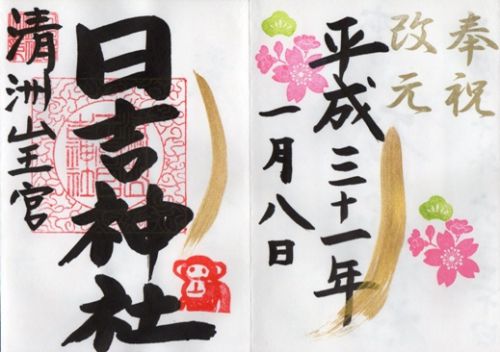 奉祝
改元
平成三十一年
一月八日
日吉神社
清洲山王宮